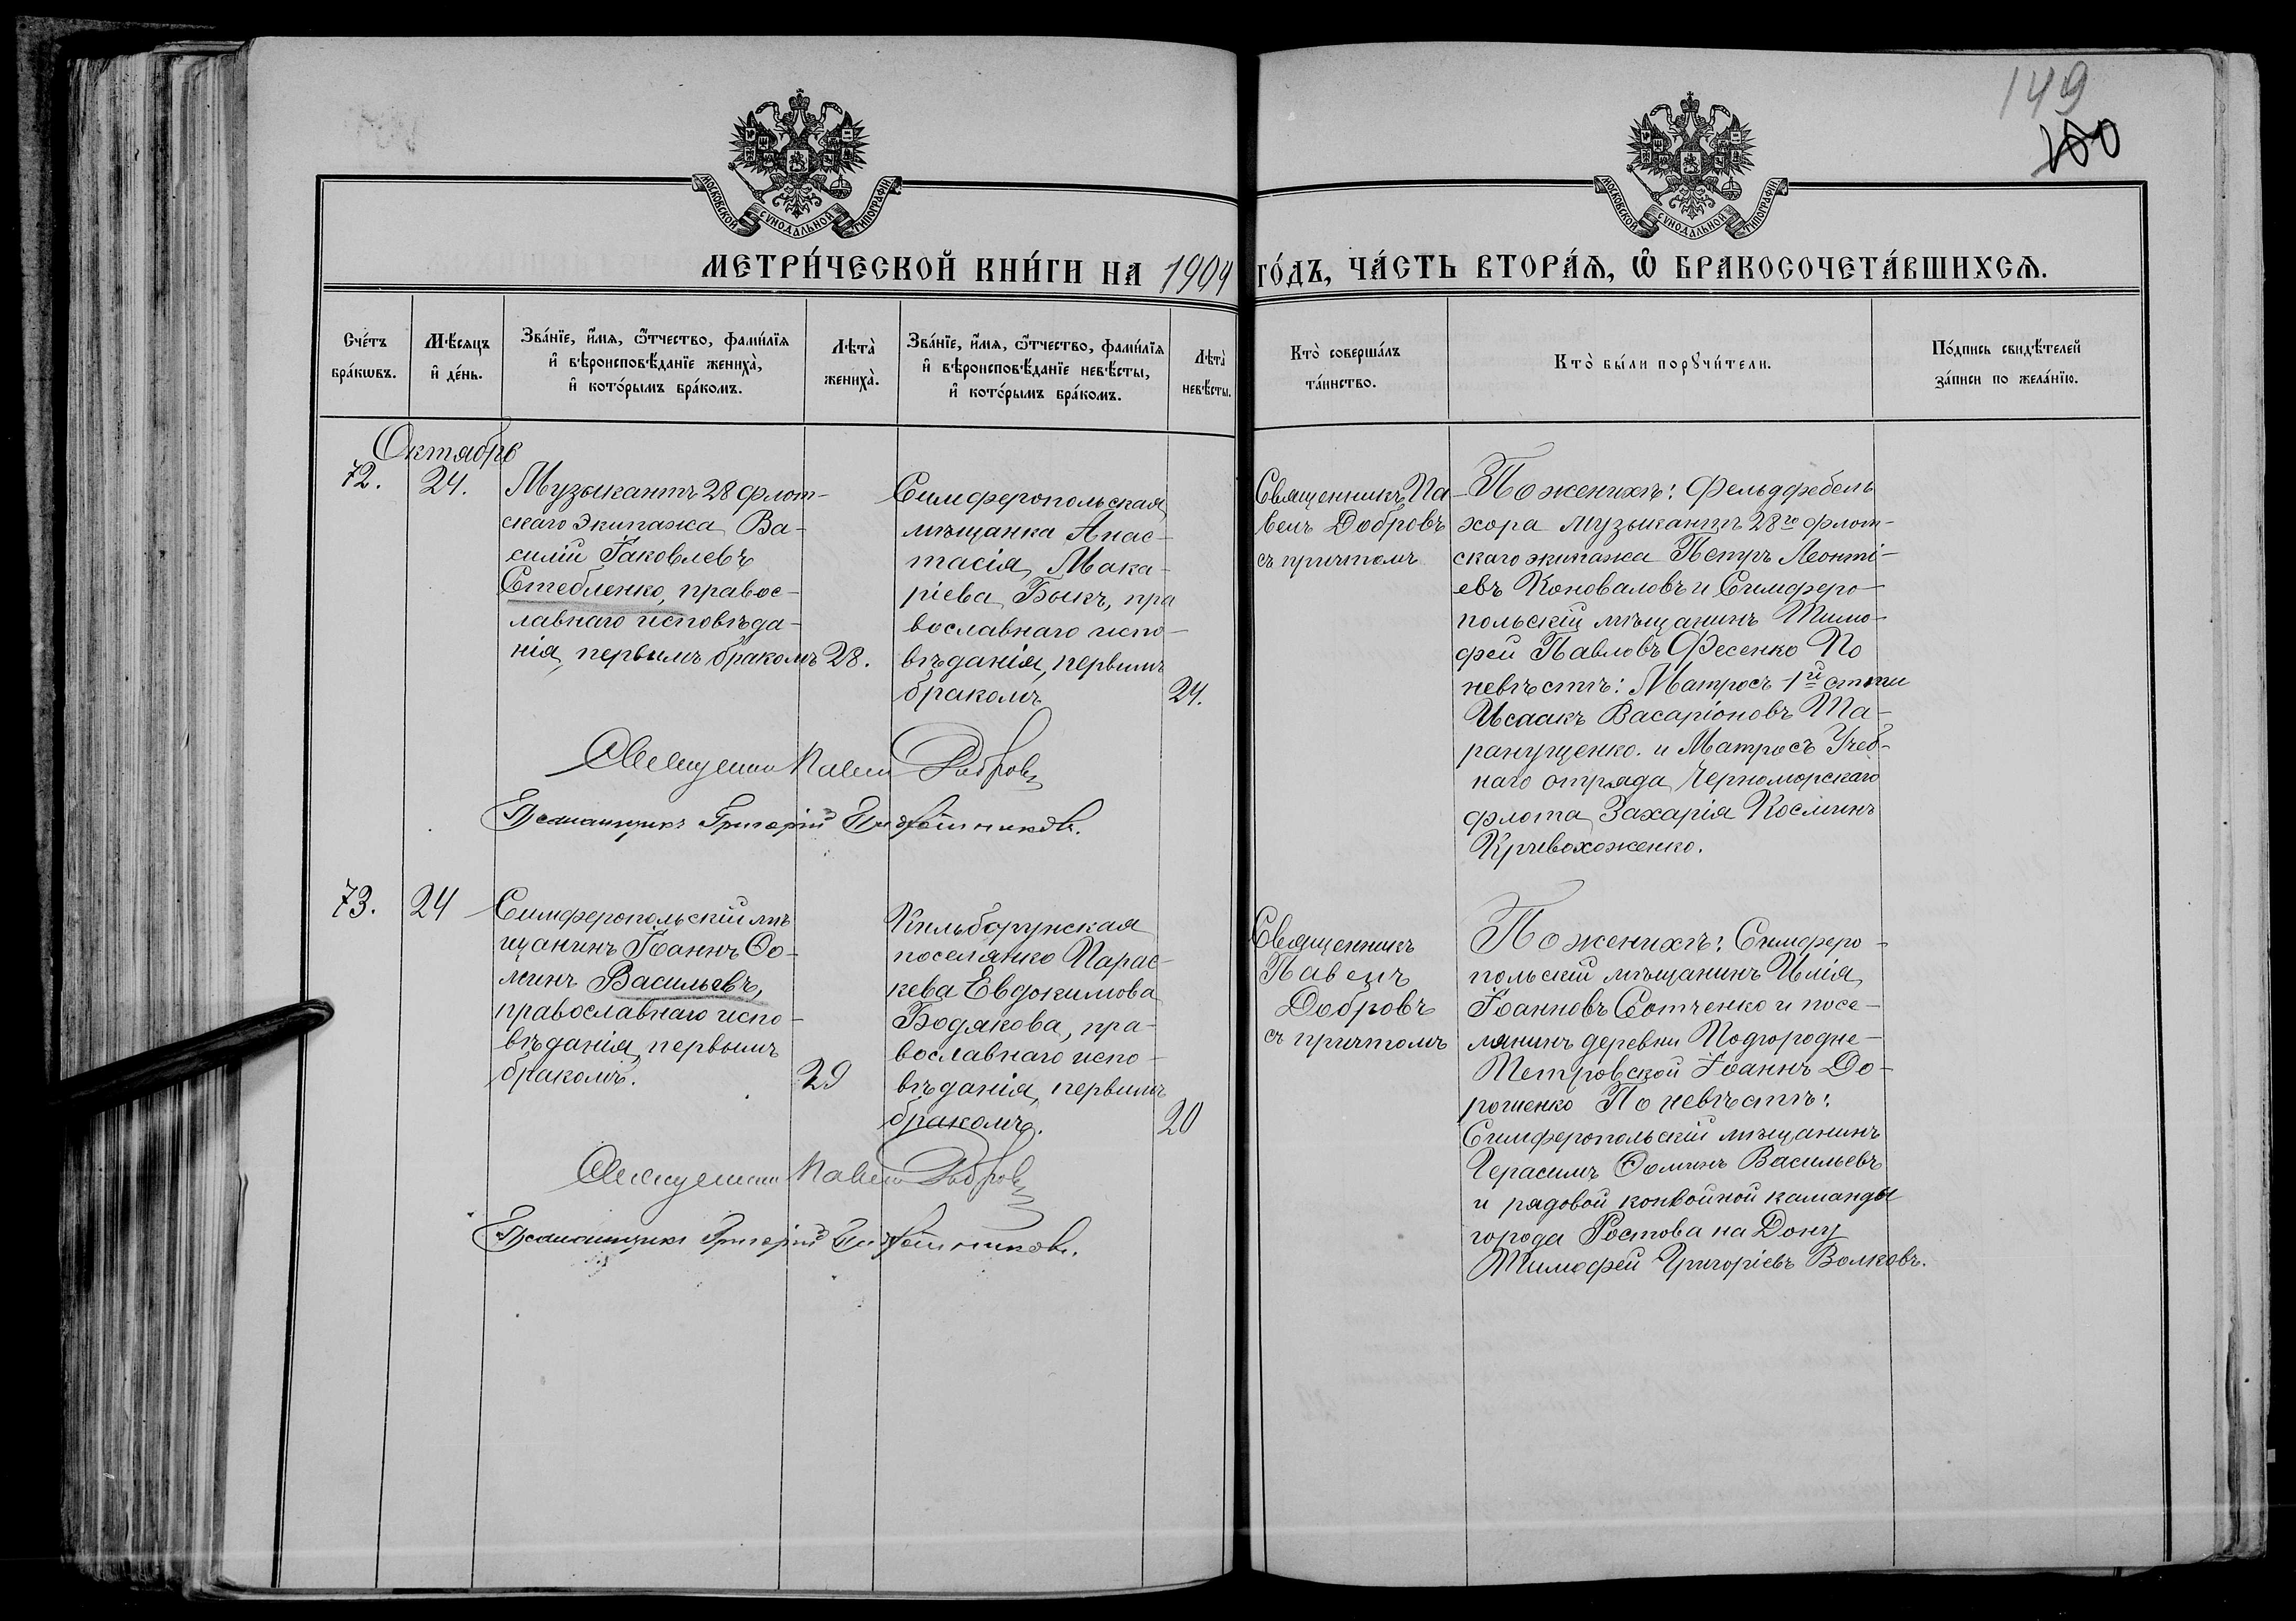 149
100
МОСКОВСКОЙ СѴНОДАЛЬНОЙ ТИПОГРАФІИ
МОСКОВСКОЙ СѴНОДАЛЬНОЙ ТИПОГРАФІИ
МЕТРИ́ЧЕСКОЙ КНИ́ГИ НА 1904 ГО́ДЪ, ЧА́СТЬ ВТОРА́Ѧ, Ѡ҆ БРАКОСОЧЕТА́ВШИХСѦ.
Сче́тъ бра́кѡвъ.
Мѣ́сяцъ и҆ де́нь.
Зва́нїе, и҆́мя, ѻ҆́тчество, фами́лїя и҆ вѣроисповѣ́данїе жениха̀, и҆ кото́рымъ бра́комъ.
Лѣта̀ жениха̀.
Зва́нїе, и҆́мя, ѻ҆́тчество, фами́лїя и҆ вѣроисповѣ́данїе невѣ́сты, и҆ кото́рымъ бра́комъ.
Лѣта̀ невѣ́сты.
Кто̀ соверша́лъ та́инство.
Кто̀ бы́ли порꙋчи́тели.
По́дпись свидѣ́телей за́писи по жела́нїю.
Октябрь
72.
24.
Музыкантъ 28 флот-
скаго экипажа Ва-
силій Іаковлевъ
Стебленко, правос-
лавнаго исповѣда-
нія, первымъ бракомъ
28.
Симферопольская
мѣщанка Анас-
тасія Мака-
ріева Быкъ, пра
вославнаго испо-
вѣданія, первымъ
бракомъ
24.
Священникъ Па-
велъ Добровъ
съ причтомъ
По женихѣ: Фельдфебель
хора музыкантъ 28го флот-
скаго экипажа Петръ Леонті-
евъ Коноваловъ и Симферо-
польскій мѣщанинъ Тимо-
фей Павловъ Фесенко По
невѣстѣ: Матросъ 1й статьи
Исаакъ Васаріоновъ Та-
ранущенко. и Матросъ Учеб-
наго отряда Черноморскаго
флота Захарія Косминъ
Кривохоженко.
Священникъ Павелъ Добровъ
Псаломщикъ Григорій
73.
24
Симферопольскій мѣ
щанинъ Іоаннъ Ѳо-
минъ Васильевъ,
православнаго испо-
вѣданія, первымъ
бракомъ.
29
Кильбурунская
поселянко Парас-
кева Евдокимова
Бодякова, пра-
вославнаго испо-
вѣданія, первымъ
бракомъ.
20
Священникъ
Павелъ
Добровъ
съ причтомъ
По женихѣ: Симферо-
польскій мѣщанинъ Илія
Іоанновъ Сотченко и посе-
лянинъ деревни Подгородне-
Петровской Іоаннъ До-
рошенко По невѣстѣ:
Симферопольскій мѣщанинъ
Герасимъ Ѳоминъ Васильевъ
и рядовой конвойной каманды
города Ростова на Дону
Тимофей Григоріевъ Волковъ.
Священникъ Павелъ Добровъ
Псаломщикъ Григорій